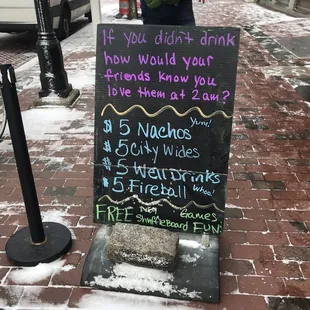 If you didn't drink
how would your
friends know you
love them at 2am?
$5 Nachos Yum!
$5 City Wides
$5 Well Drinks
$5 Fireball Whoa!
FREE Games
Shuffleboard FUN!